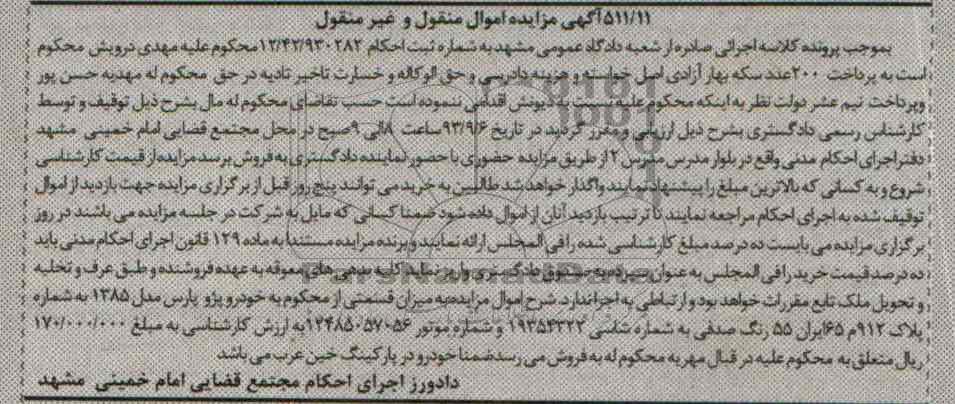 ۵۱۱/۱۱آگهی مزایده اموال منقول و غیر منقول
بموجب پرونده کلاسه اجرائی صادره از شعبه دادگاه عمومی مشهد به شماره ثبت احکام ۱۲/۴۲/۹۳۰۲۸۲محکوم علیه مهدی درویش محکوم
است به پرداخت ۲۰۰عدد سکه بهار آزادی اصل خواسته و هزینه دادرسی و حق الوکاله و خسارت تاخیر تادیه در حق محکوم له مهدیه حسن پور
وپرداخت نیم عشر دولت نظر به اینکه محکوم علیه نسبت به دیونش اقدامی ننموده است حسب تقاضای محکوم له مال بشرح ذیل توقیف و توسط
کارشناس رسمی دادگستری بشرح ذیل ارزیابی و مقرر گردید در تاریخ ۹۳/۹/۶ساعت ۸الی ۹صبح در محل مجتمع قضایی امام خمینی مشهد
دفتراجرای احکام مدنی واقع در بلوار مدرس مدرس ۲ از طریق مزایده حضوری با حضور نماینده دادگستری به فروش برسد مزایده از قیمت کارشناسی
شروع و به کسانی که بالاترین مبلغ را پیشنهاد نمایند واگذار خواهد شد طالبین به خرید می توانند پنج روز قبل از برگزاری مزایده جهت بازدید از اموال
توقیف شده به اجرای احکام مراجعه نمایند تا ترتیب بازدید آنان از اموال داده شود ضمنا کسانی که مایل به شرکت در جلسه مزایده می باشند در روز
برگزاری مزایده می بایست ده درصد مبلغ کارشناسی شده را فی المجلس ارائه نمایند و برنده مزایده مستندا به ماده ۱۲۹ قانون اجرای احکام مدنی باید
ده درصد قیمت خرید را فی المجلس به عنوان سپرده به صندوق دادگستری واریز نماید کلیه بدهی های معوقه به عهده فروشنده و طبق عرف و تخلیه
و تحویل ملک تابع مقررات خواهد بود و ارتباطی به اجرا ندارد. شرح اموال مزایده:به میزان قسمتی از محکوم به خودرو پژو پارس مدل ۱۳۸۵ به شماره
پلاک ۹۱۲م ۶۵ایران ۵۵ رنگ صدفی به شماره شاسی ۱۹۳۵۴۳۲۲ و شماره موتور ۱۲۴۸۵۰۵۷۰۵۶به ارزش کارشناسی به مبلغ ۱۷۰/۰۰۰/۰۰۰
ریال متعلق به محکوم علیه در قبال مهریه محکوم له به فروش می رسد ضمنا خودرو در پارکینگ خین عرب می باشد
دادورز اجرای احکام مجتمع قضایی امام خمینی مشهد
ParsNamadData